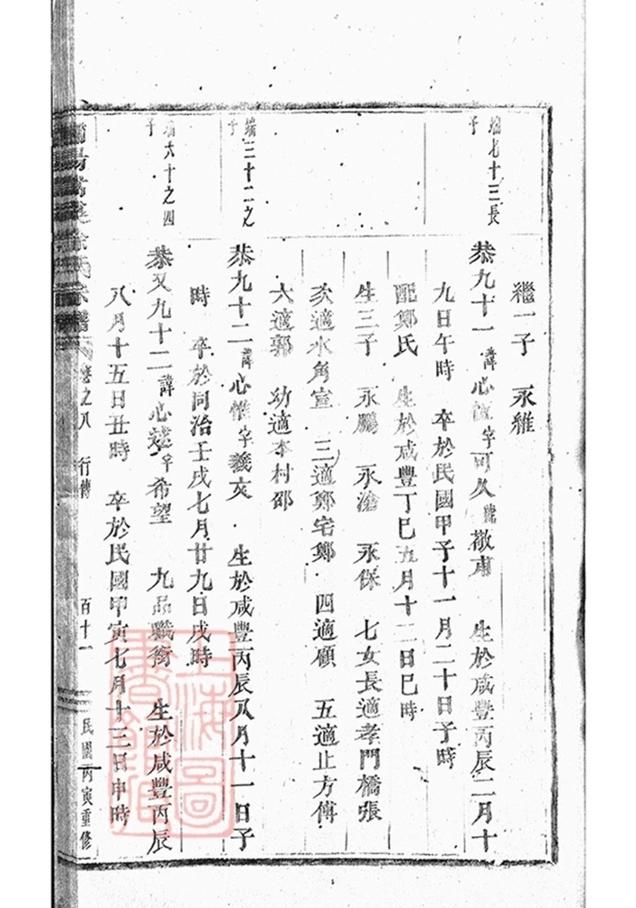 繼一子 永維
端七十三長子
恭九十一 諱心恆字可久號徵甫 生於咸豐丙辰二月十
九日午時 卒於民國甲子十一月二十日子時
配鄭氏 生於咸豐丁巳五月十二日巳時
生三子 永鵬 永滄 永保 七女長適孝門橋張
次適水角宣 三適鄭宅鄭 四適顧 五適止方傅
六適郭 幼適本村邵
端三十二之子
恭九十二 諱心惟字羲友 生於咸豐丙辰八月十一日子
時 卒於同治壬戌七月廿九日戌時
端六十之四子
恭又九十二 諱心 字希望 九品職銜 生於咸豐丙辰
八月十五日丑時 卒於民國甲寅七月十三日申時
宗譜 卷之八 行傳 百十一 民國丙寅重修
上海圖書館藏